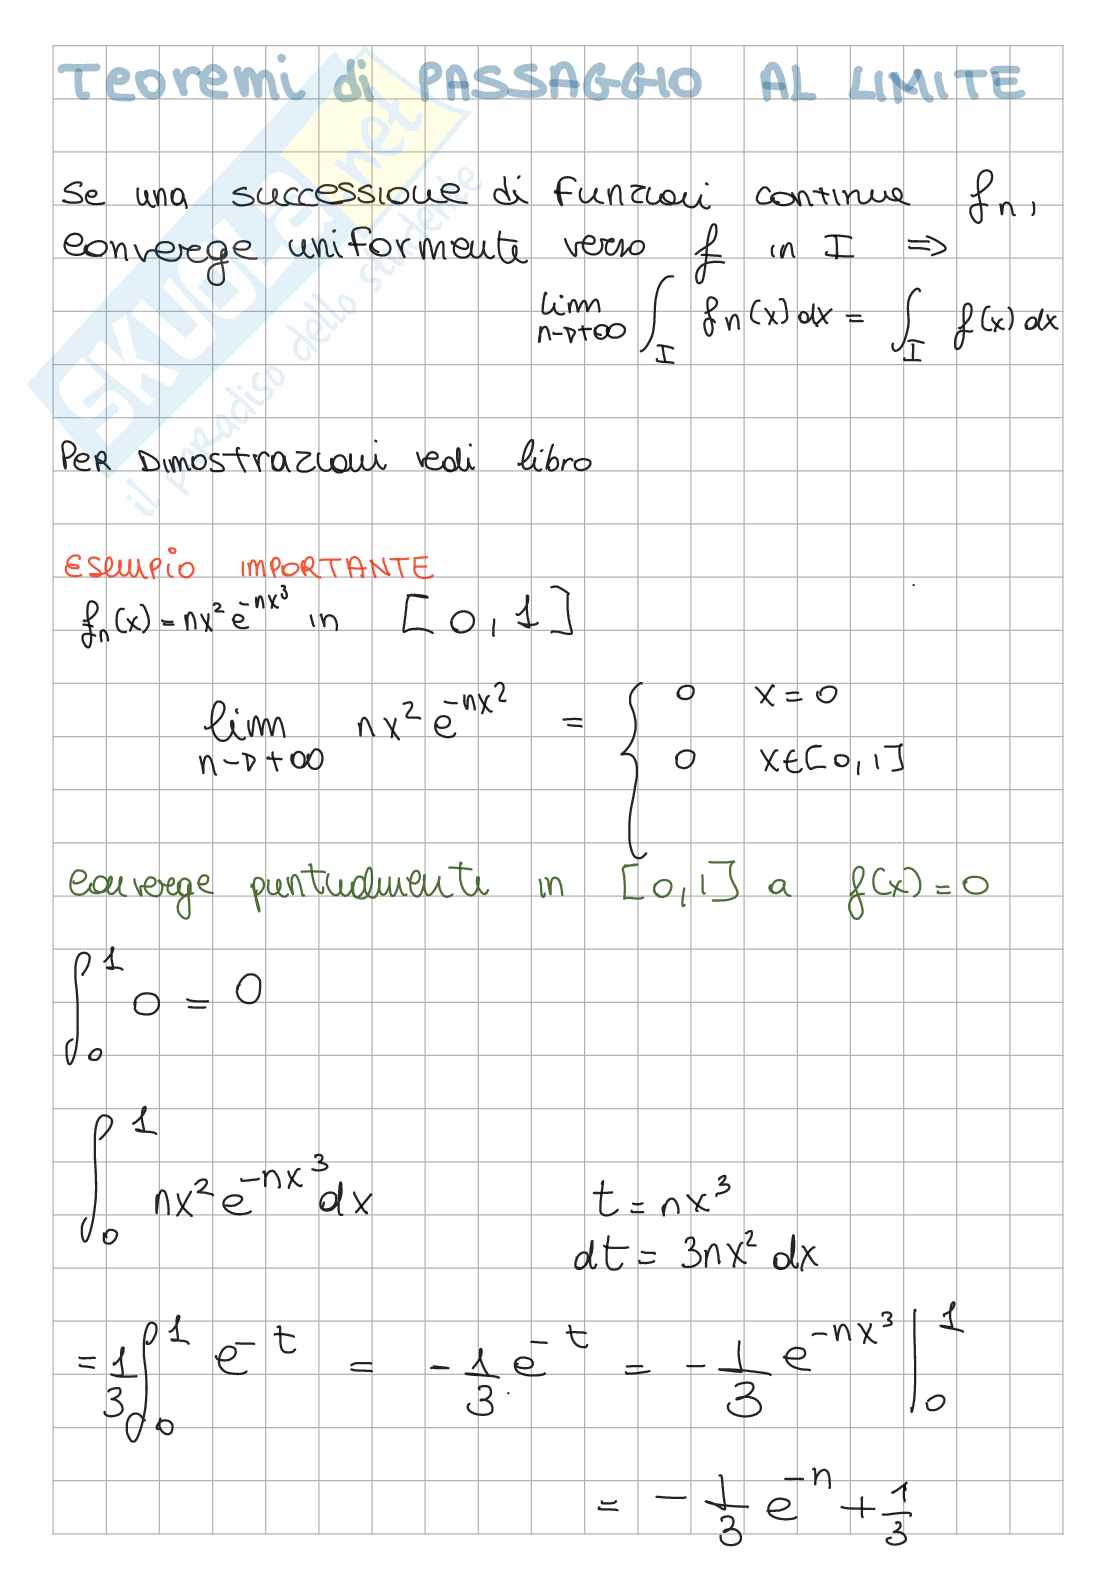 Teoremi di PASSAGGIO AL LIMITE
Se una successione di funzioni continue fₙ,
converge uniformemente verso f in I ⇒
lim n→+∞ ∫_I fₙ(x) dx = ∫_I f(x) dx
PER DIMOSTRAZIONI vedi libro
ESEMPIO IMPORTANTE
fₙ(x) = nx² e^(-nx³) in [0,1]
lim n→+∞ nx² e^(-nx²) = { 0 x=0
0 x∈[0,1]
converge puntualmente in [0,1] a f(x)=0
∫₀¹ 0 = 0
∫₀¹ nx² e^(-nx³) dx t = nx³
dt = 3nx² dx
= 1/3 ∫₀¹ e^(-t) = -1/3 e^(-t) = -1/3 e^(-nx³) |₀¹
= -1/3 e^(-n) + 1/3
SKUOLA.net
il paradiso dello studente